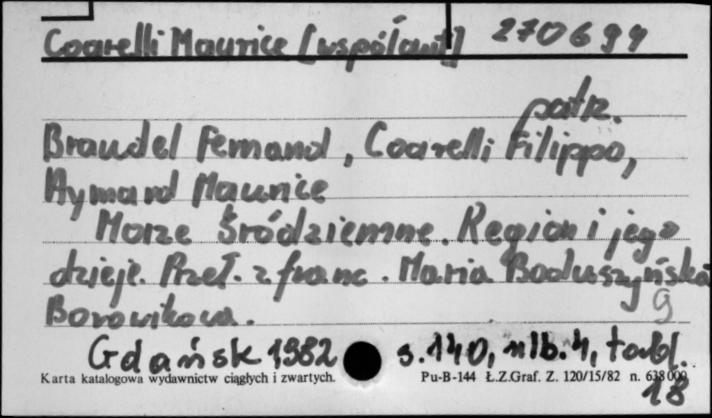 Coarelli Maurice [współaut] 270694
patrz.
Braudel Fernand, Coarelli Filippo,
Aymard Maurice
Morze Śródziemne. Region i jego
dzieje. Przeł. z franc. Maria Boduszyńska
9
Borowikowa.
Gdańsk 1982 s. 140, nlb. 4, tabl.
Karta katalogowa wydawnictw ciągłych i zwartych. Pu-B-144 Ł.Z.Graf. Z. 120/15/82 n. 638 000
18